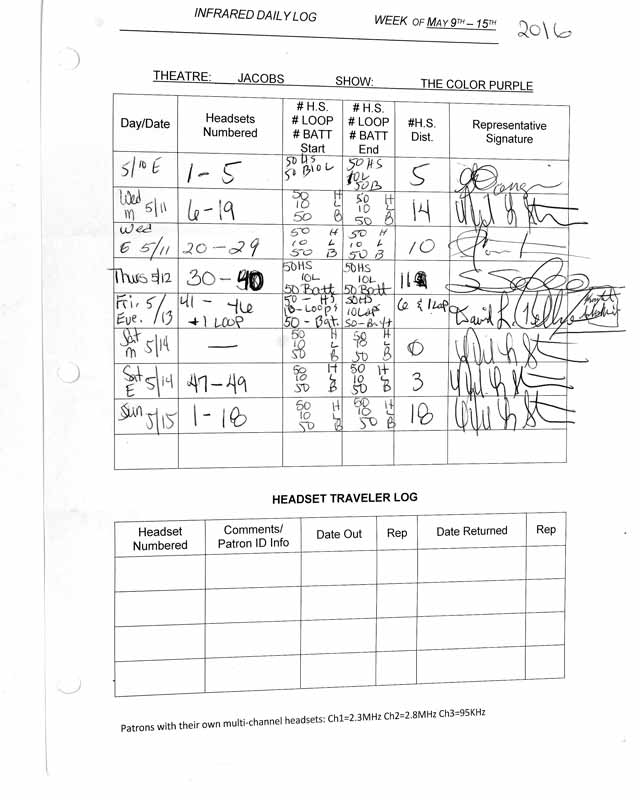 INFRARED DAILY LOG WEEK OF MAY 9TH – 15TH 2016
THEATRE: JACOBS SHOW: THE COLOR PURPLE
Day/Date
Headsets
Numbered
# H.S.
# LOOP
# BATT
Start
# H.S.
# LOOP
# BATT
End
#H.S.
Dist.
Representative
Signature
5/10 E
1 - 5
50 HS
50 B 10 L
50 HS
10L
50B
5
Wed
m 5/11
6-19
50 H
10 L
50 B
50 H
10 L
50 B
14
Wed
E 5/11
20-29
50 H
10 L
50 B
50 H
10 L
50 B
10
Thurs 5/12
30-40
50HS
10L
50 Batt
50HS
10L
50 Batt
11
Fri. 5/
Eve. /13
41 - 46
+1 LOOP
50 - HS
10-Loops
50 - Bat.
50HS
10Loop
50-Batt
6 & 1 Loop
David L.
Sat
m 5/14
—
50 H
10 L
50 B
50 H
10 L
50 B
0
Sat
E 5/14
47-49
50 H
10 L
50 B
50 H
10 L
50 B
3
Sun 5/15
1-18
50 H
10 L
50 B
50 H
10 L
50 B
18
HEADSET TRAVELER LOG
Headset
Numbered
Comments/
Patron ID Info
Date Out
Rep
Date Returned
Rep
Patrons with their own multi-channel headsets: Ch1=2.3MHz Ch2=2.8MHz Ch3=95KHz